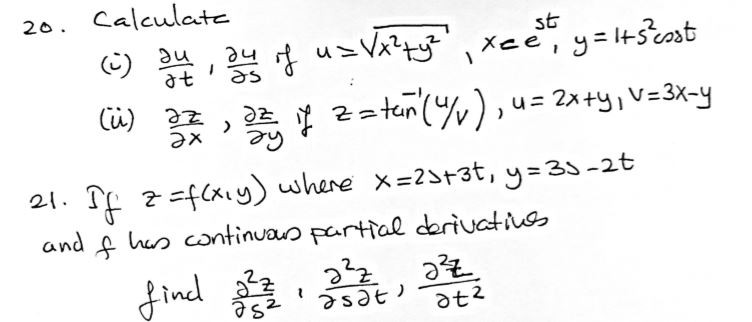 20. Calculate
(i) ∂u/∂t , ∂u/∂s if u = √(x²+y²) , x = e^{st} , y = 1+s²cost
(ii) ∂z/∂x , ∂z/∂y if z = tan⁻¹(u/v) , u = 2x+y , v = 3x-y
21. If z = f(x,y) where x = 2s+3t, y = 3s-2t
and f has continuous partial derivatives
find ∂²z/∂s² , ∂²z/∂s∂t , ∂²z/∂t²